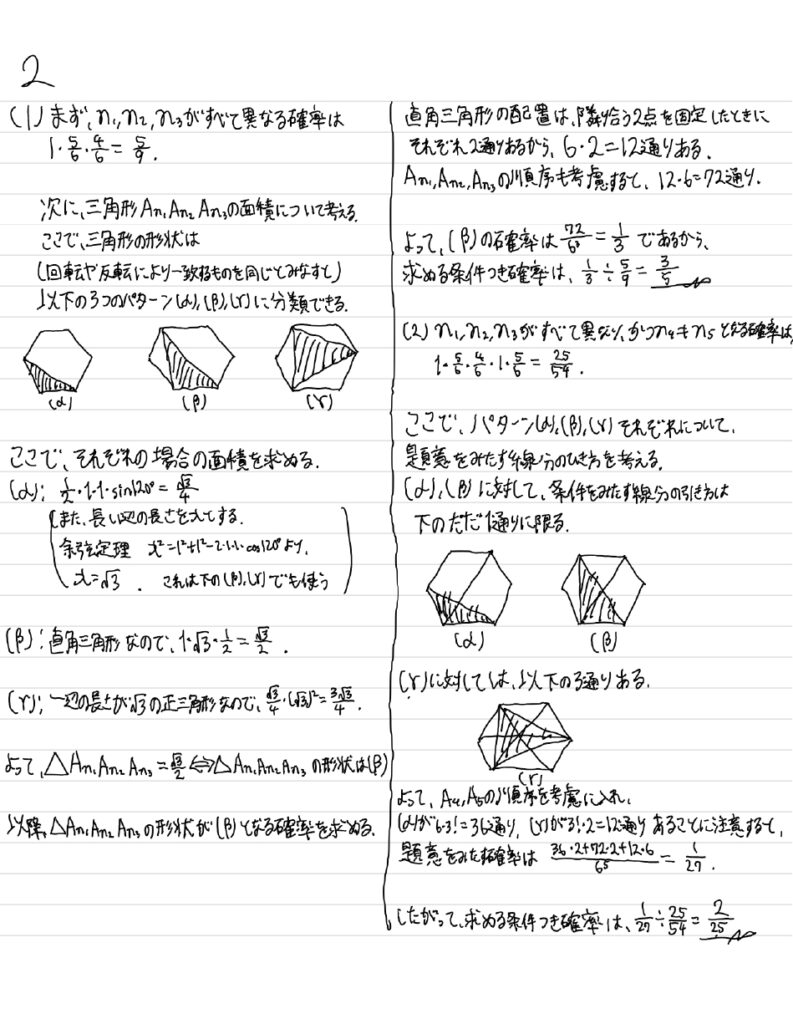 2
(1) まず、n₁, n₂, n₃がすべて異なる確率は
1・5/6・4/6 = 5/9.
次に、三角形An₁An₂An₃の面積について考える.
ここで、三角形の形状は
(回転や反転により一致するものを同じとみなすと)
以下の3つのパターン(α),(β),(γ)に分類できる.
(α) (β) (γ)
ここで、それぞれの場合の面積を求める.
(α): 1/2・1・1・sin120° = √3/4
(また、長い辺の長さをxとする.
余弦定理 x²=1²+1²-2・1・1・cos120°より,
x=√3. これは下の(β),(γ)でも使う)
(β): 直角三角形なので、1・√3・1/2 = √3/2.
(γ): 一辺の長さが√3の正三角形なので、√3/4・(√3)² = 3√3/4.
よって、△An₁An₂An₃ = √3/2 ⇔ △An₁An₂An₃の形状は(β)
以降、△An₁An₂An₃の形状が(β)となる確率を求める.
直角三角形の配置は、隣り合う2点を固定したときに
それぞれ2通りあるから、6・2=12通りある.
An₁, An₂, An₃の順序も考慮すると、12・6=72通り.
よって、(β)の確率は 72/6³ = 1/3 であるから、
求める条件つき確率は、1/3÷5/9 = 3/5
(2) n₁, n₂, n₃がすべて異なり、かつn₄≠n₅となる確率は、
1・5/6・4/6・1・5/6 = 25/54.
ここで、パターン(α),(β),(γ)それぞれについて、
題意をみたす線分のひき方を考える.
(α),(β)に対して、条件をみたす線分の引き方は
下のただ1通りに限る.
(α) (β)
(γ)に対しては、以下の3通りある.
(γ)
よって、A₄, A₅の順序を考慮に入れ、
(α)が6・3!=36通り, (γ)が3!・2=12通りあることに注意すると,
題意をみたす確率は (36・2+72・2+12・6)/6⁵ = 1/27.
したがって、求める条件つき確率は、1/27÷25/54 = 2/25